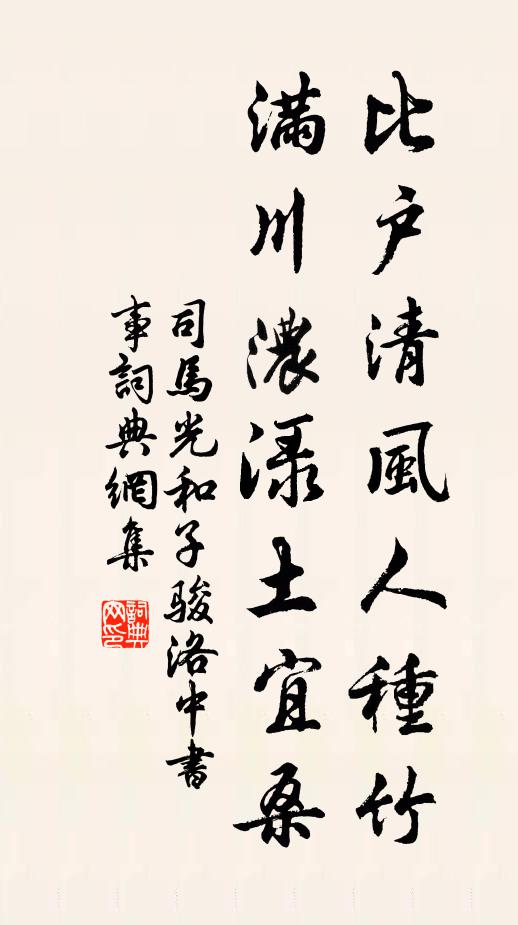 比户清風人種竹
滿川濃渌土宜桑
司馬光和子駿洛中書
事詞典網集
詞典
网印